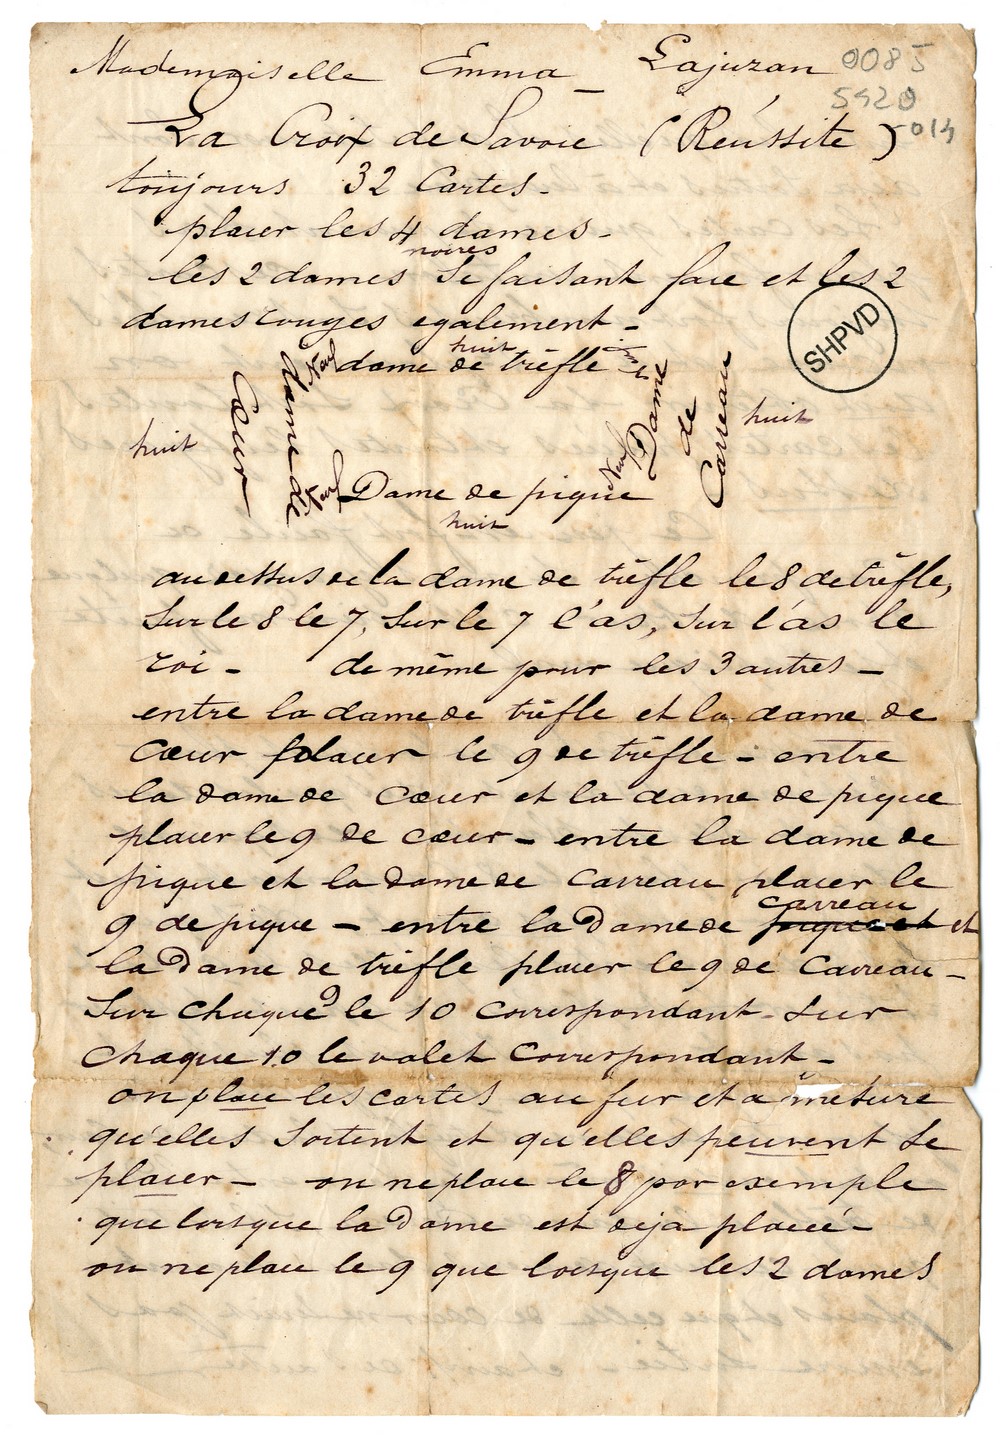 Mademoiselle Emma Lajuzan
0085
5920
-014
La Croix de Savoie (Réussite)
toujours 32 Cartes -
placer les 4 dames -
noires
les 2 dames se faisant face et les 2
dames rouges egalement -
SHPVD
huit
dame de trèfle
Neuf
Dame de
Cœur
Dame
de
Carreau
huit
huit
Neuf
Neuf
Dame de pique
huit
au dessus de la dame de trèfle le 8 de trèfle,
sur le 8 le 7, sur le 7 l'as, sur l'as le
roi - de même pour les 3 autres -
entre la dame de trèfle et la dame de
Cœur placer le 9 de trèfle - entre
la dame de Cœur et la dame de pique
placer le 9 de cœur - entre la dame de
pique et la dame de Carreau placer le
carreau
9 de pique - entre la Dame de pique et et
la Dame de trèfle placer le 9 de Carreau -
Sur chaque 9 le 10 correspondant - Sur
chaque 10 le valet correspondant -
on place les cartes au fur et a mesure
qu'elles sortent et qu'elles peuvent se
placer - on ne place le 8 par exemple
que lorsque la Dame est deja placée -
on ne place le 9 que lorsque les 2 dames